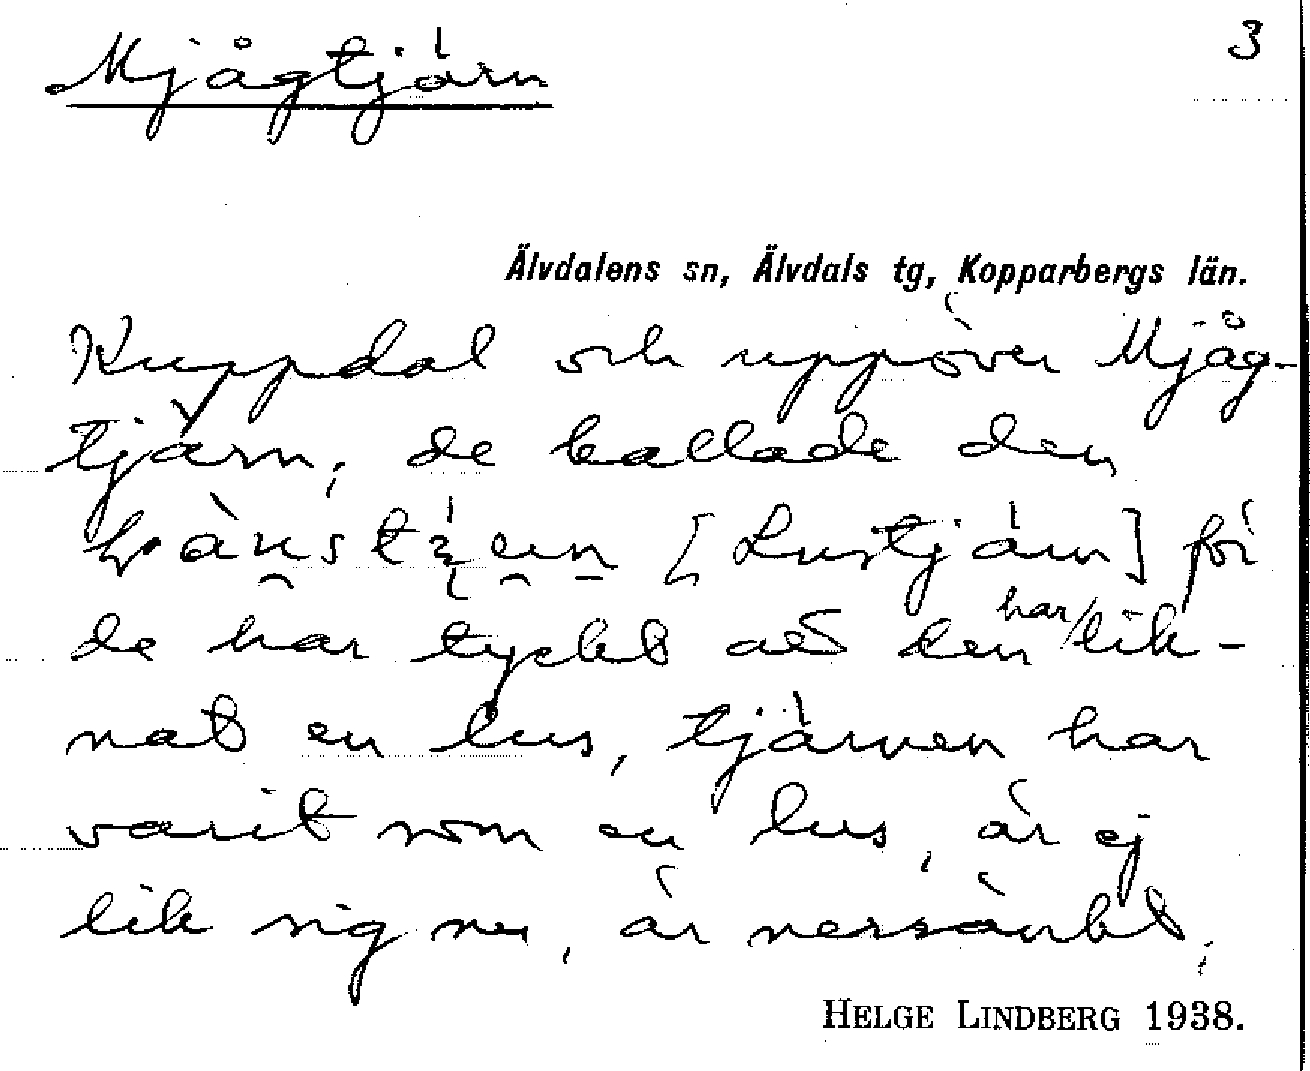 Mjågtjärn
3
Älvdalens sn, Älvdals tg, Kopparbergs län.
Kuppdal och uppöver Mjåg-
tjärn, de kallade den
[Lustjärn] för
de har tyckt att den har lik-
nat en lus, tjärnen har
varit som en lus, är ej
lik sig nu, är nersänkt,
HELGE LINDBERG 1938.